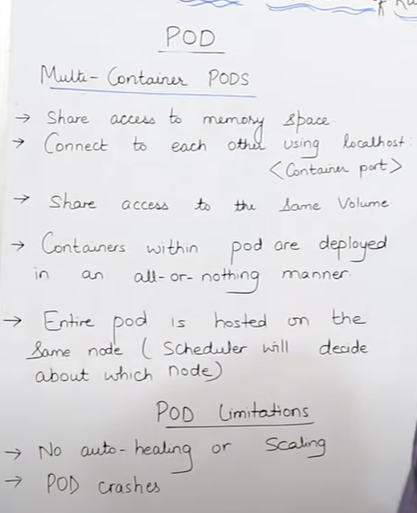 POD
Multi-Container PODS
→ Share access to memory space.
→ Connect to each other using localhost:
<Container port>
→ Share access to the Same Volume
→ Containers within pod are deployed
in an all-or-nothing manner.
→ Entire pod is hosted on the
Same node ( Scheduler will decide
about which node)
POD Limitations
→ No auto-healing or Scaling
→ POD crashes